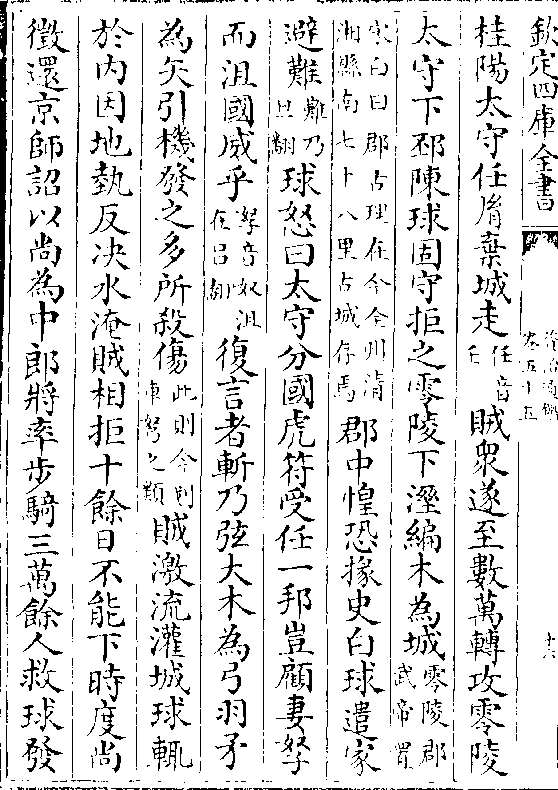 欽定四庫全書
卷五十五
十六
桂陽太守任胤棄城走任音壬賊衆遂至數萬轉攻零陵
太守下邳陳球固守拒之零陵下溼編木為城零陵郡武帝置
宋白曰郡古理在今全州清湘縣南七十八里古城存焉郡中惶恐掾史白球遣家
避難難乃旦翻球怒曰太守分國虎符受任一邦豈顧妻孥
而沮國威乎孥音奴沮在呂翻復言者斬乃弦大木為弓羽矛
為矢引機發之多所殺傷此則今則車弩之類賊激流灌城球輒
於內因地埶反決水淹賊相拒十餘日不能下時度尚
徵還京師詔以尚為中郎將率步騎三萬餘人救球發